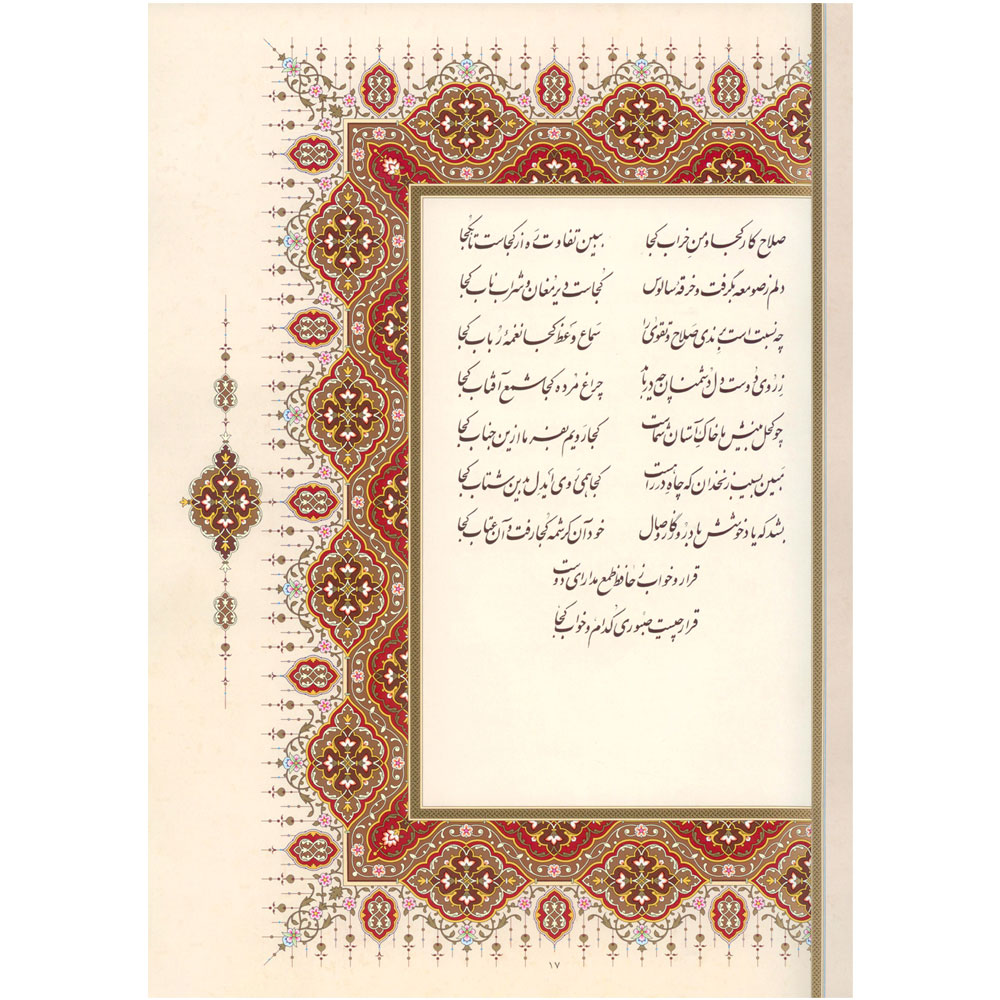 صلاح کار کجا و من خراب کجا ببین تفاوت ره از کجاست تا بکجا
دلم ز صومعه بگرفت و خرقه سالوس کجاست دیر مغان و شراب ناب کجا
چه نسبت است برندی صلاح و تقوی را سماع وعظ کجا نغمهٔ رباب کجا
ز روی دوست دل دشمنان چه دریابد چراغ مرده کجا شمع آفتاب کجا
چو کحل بینش ما خاک آستان شماست کجا رویم بفرما ازین جناب کجا
مبین بسیب زنخدان که چاه در راهست کجا همی روی ای دل بدین شتاب کجا
بشد که یاد خوشش باد روزگار وصال خود آن کرشمه کجا رفت و آن عتاب کجا
قرار و خواب ز حافظ طمع مدار ای دوست
قرار چیست صبوری کدام و خواب کجا
۱۷